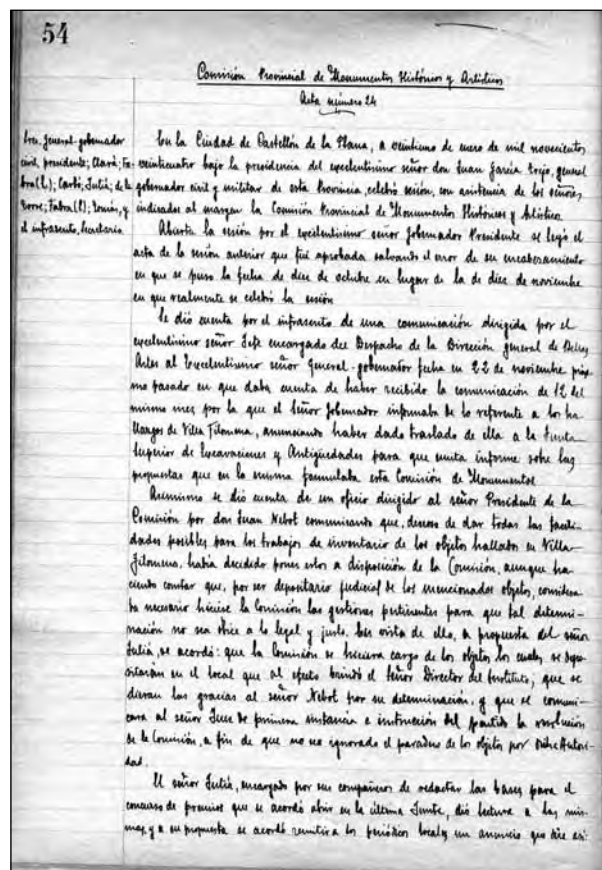 54
Comisión Provincial de Monumentos Históricos y Artísticos
Acta número 24
Sres. General-gobernador
civil, presidente; Clará; Fa-
bra (L); Carbó; Juliá; de la
Torre; Fabra (V); Tomás, y
el infrascrito, Secretario
En la Ciudad de Castellón de la Plana, a veintiuno de enero de mil novecientos
veinticuatro bajo la presidencia del excelentísimo señor don Juan García Trejo, general
gobernador civil y militar de esta Provincia, celebró sesión, con asistencia de los señores,
indicados al margen la Comisión Provincial de Monumentos Históricos y Artísticos.
Abierta la sesión por el excelentísimo señor Gobernador Presidente se leyó el
acta de la sesión anterior que fué aprobada salvando el error de su encabezamiento
en que se puso la fecha de diez de octubre en lugar de la de diez de noviembre
en que realmente se celebró la sesión
Se dió cuenta por el infrascrito de una comunicación dirigida por el
excelentísimo señor Jefe encargado del Despacho de la Dirección general de Bellas
Artes al Excelentísimo señor General-gobernador fecha en 22 de noviembre próxi
mo pasado en que daba cuenta de haber recibido la comunicación de 12 del
mismo mes por la que el Señor Gobernador informaba de lo referente a los ha
llazgos de Villa Filomena, anunciando haber dado traslado de ella a la Junta
Superior de Excavaciones y Antigüedades para que emita informe sobre las
propuestas que en la misma formulaba esta Comisión de Monumentos
Asimismo se dió cuenta de un oficio dirigido al señor Presidente de la
Comisión por don Juan Nebot comunicando que, deseoso de dar todas las facili-
dades posibles para los trabajos de inventario de los objetos hallados en Villa-
Filomena, había decidido poner estos a disposición de la Comisión, aunque ha-
ciendo constar que, por ser depositario judicial de los mencionados objetos, considera-
ba necesario hiciese la Comisión las gestiones pertinentes para que tal determi-
nación no sea óbice a lo legal y justo. En vista de ella, a propuesta del señor
Juliá, se acordó: que la Comisión se hiciera cargo de los objetos los cuales se depo-
sitarán en el local que al efecto brindó el Señor Director del Instituto; que se
dieran las gracias al señor Nebot por su determinación, y que se comuni-
cara al señor Juez de primera instancia e instrucción del partido la resolución
de la Comisión, a fin de que no sea ignorado el paradero de los objetos por dicha Autori-
dad.
El señor Juliá, encargado por sus compañeros de redactar las bases para el
concurso de premios que se acordó abrir en la última Junta, dió lectura a las mis-
mas, y a su propuesta se acordó remitir a los periódicos locales un anuncio que dice así: